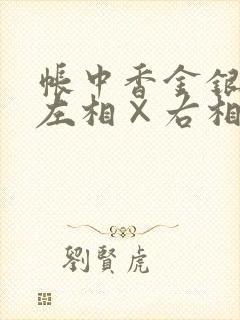 帳中香金銀
左相×右相
劉賢虎